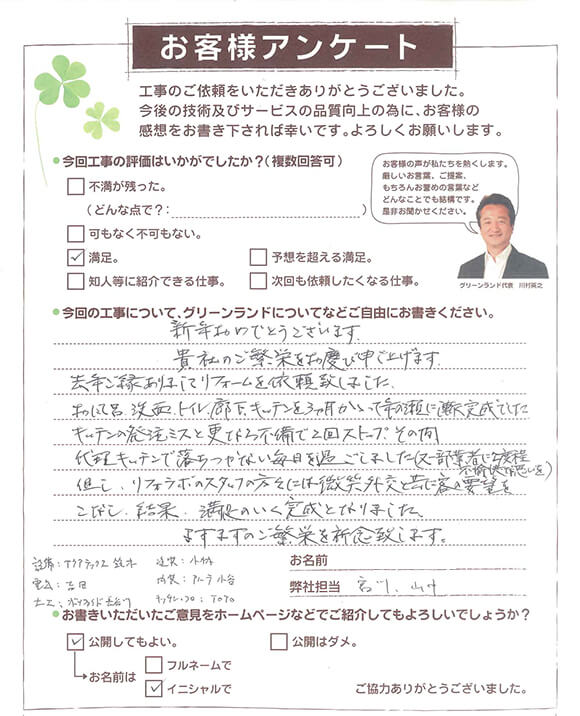 お客様アンケート
工事のご依頼をいただきありがとうございました。
今後の技術及びサービスの品質向上の為に、お客様の
感想をお書き下されば幸いです。よろしくお願いします。
●今回工事の評価はいかがでしたか?(複数回答可)
不満が残った。
(どんな点で?: )
可もなく不可もない。
✓ 満足。
予想を超える満足。
知人等に紹介できる仕事。
次回も依頼したくなる仕事。
お客様の声が私たちを熱くします。
厳しいお言葉、ご提案、
もちろんお誉めの言葉など
どんなことでも結構です。
是非お聞かせください。
グリーンランド代表 川村英之
●今回の工事について、グリーンランドについてなどご自由にお書きください。
新年おめでとうございます
貴社のご繁栄をお慶び申し上げます
去年ご縁ありましてリフォームを依頼致しました
お風呂、洗面、トイレ、廊下、キッチンを3ヶ月かかって年の瀬に漸く完成でした
キッチンの発注ミスと更なる不備で2回ストップ その間
代理キッチンで落ちつかない毎日を過ごしました(又一部業者に
不愉快な思いを)
但し、リフォラボのスタッフの方々には微笑外交と共に客の要望を
こなし、結果、満足のいく完成となりました。
ますますのご繁栄を祈念致します。
設備: アクアテックス 鈴木
建装: 小林
電気: 吉田
内装: 小谷
大工: 長谷川
キッチン、フロ: TOTO
お名前
弊社担当 宮川、山中
●お書きいただいたご意見をホームページなどでご紹介してもよろしいでしょうか?
✓ 公開してもよい。
公開はダメ。
お名前は
フルネームで
✓ イニシャルで
ご協力ありがとうございました。